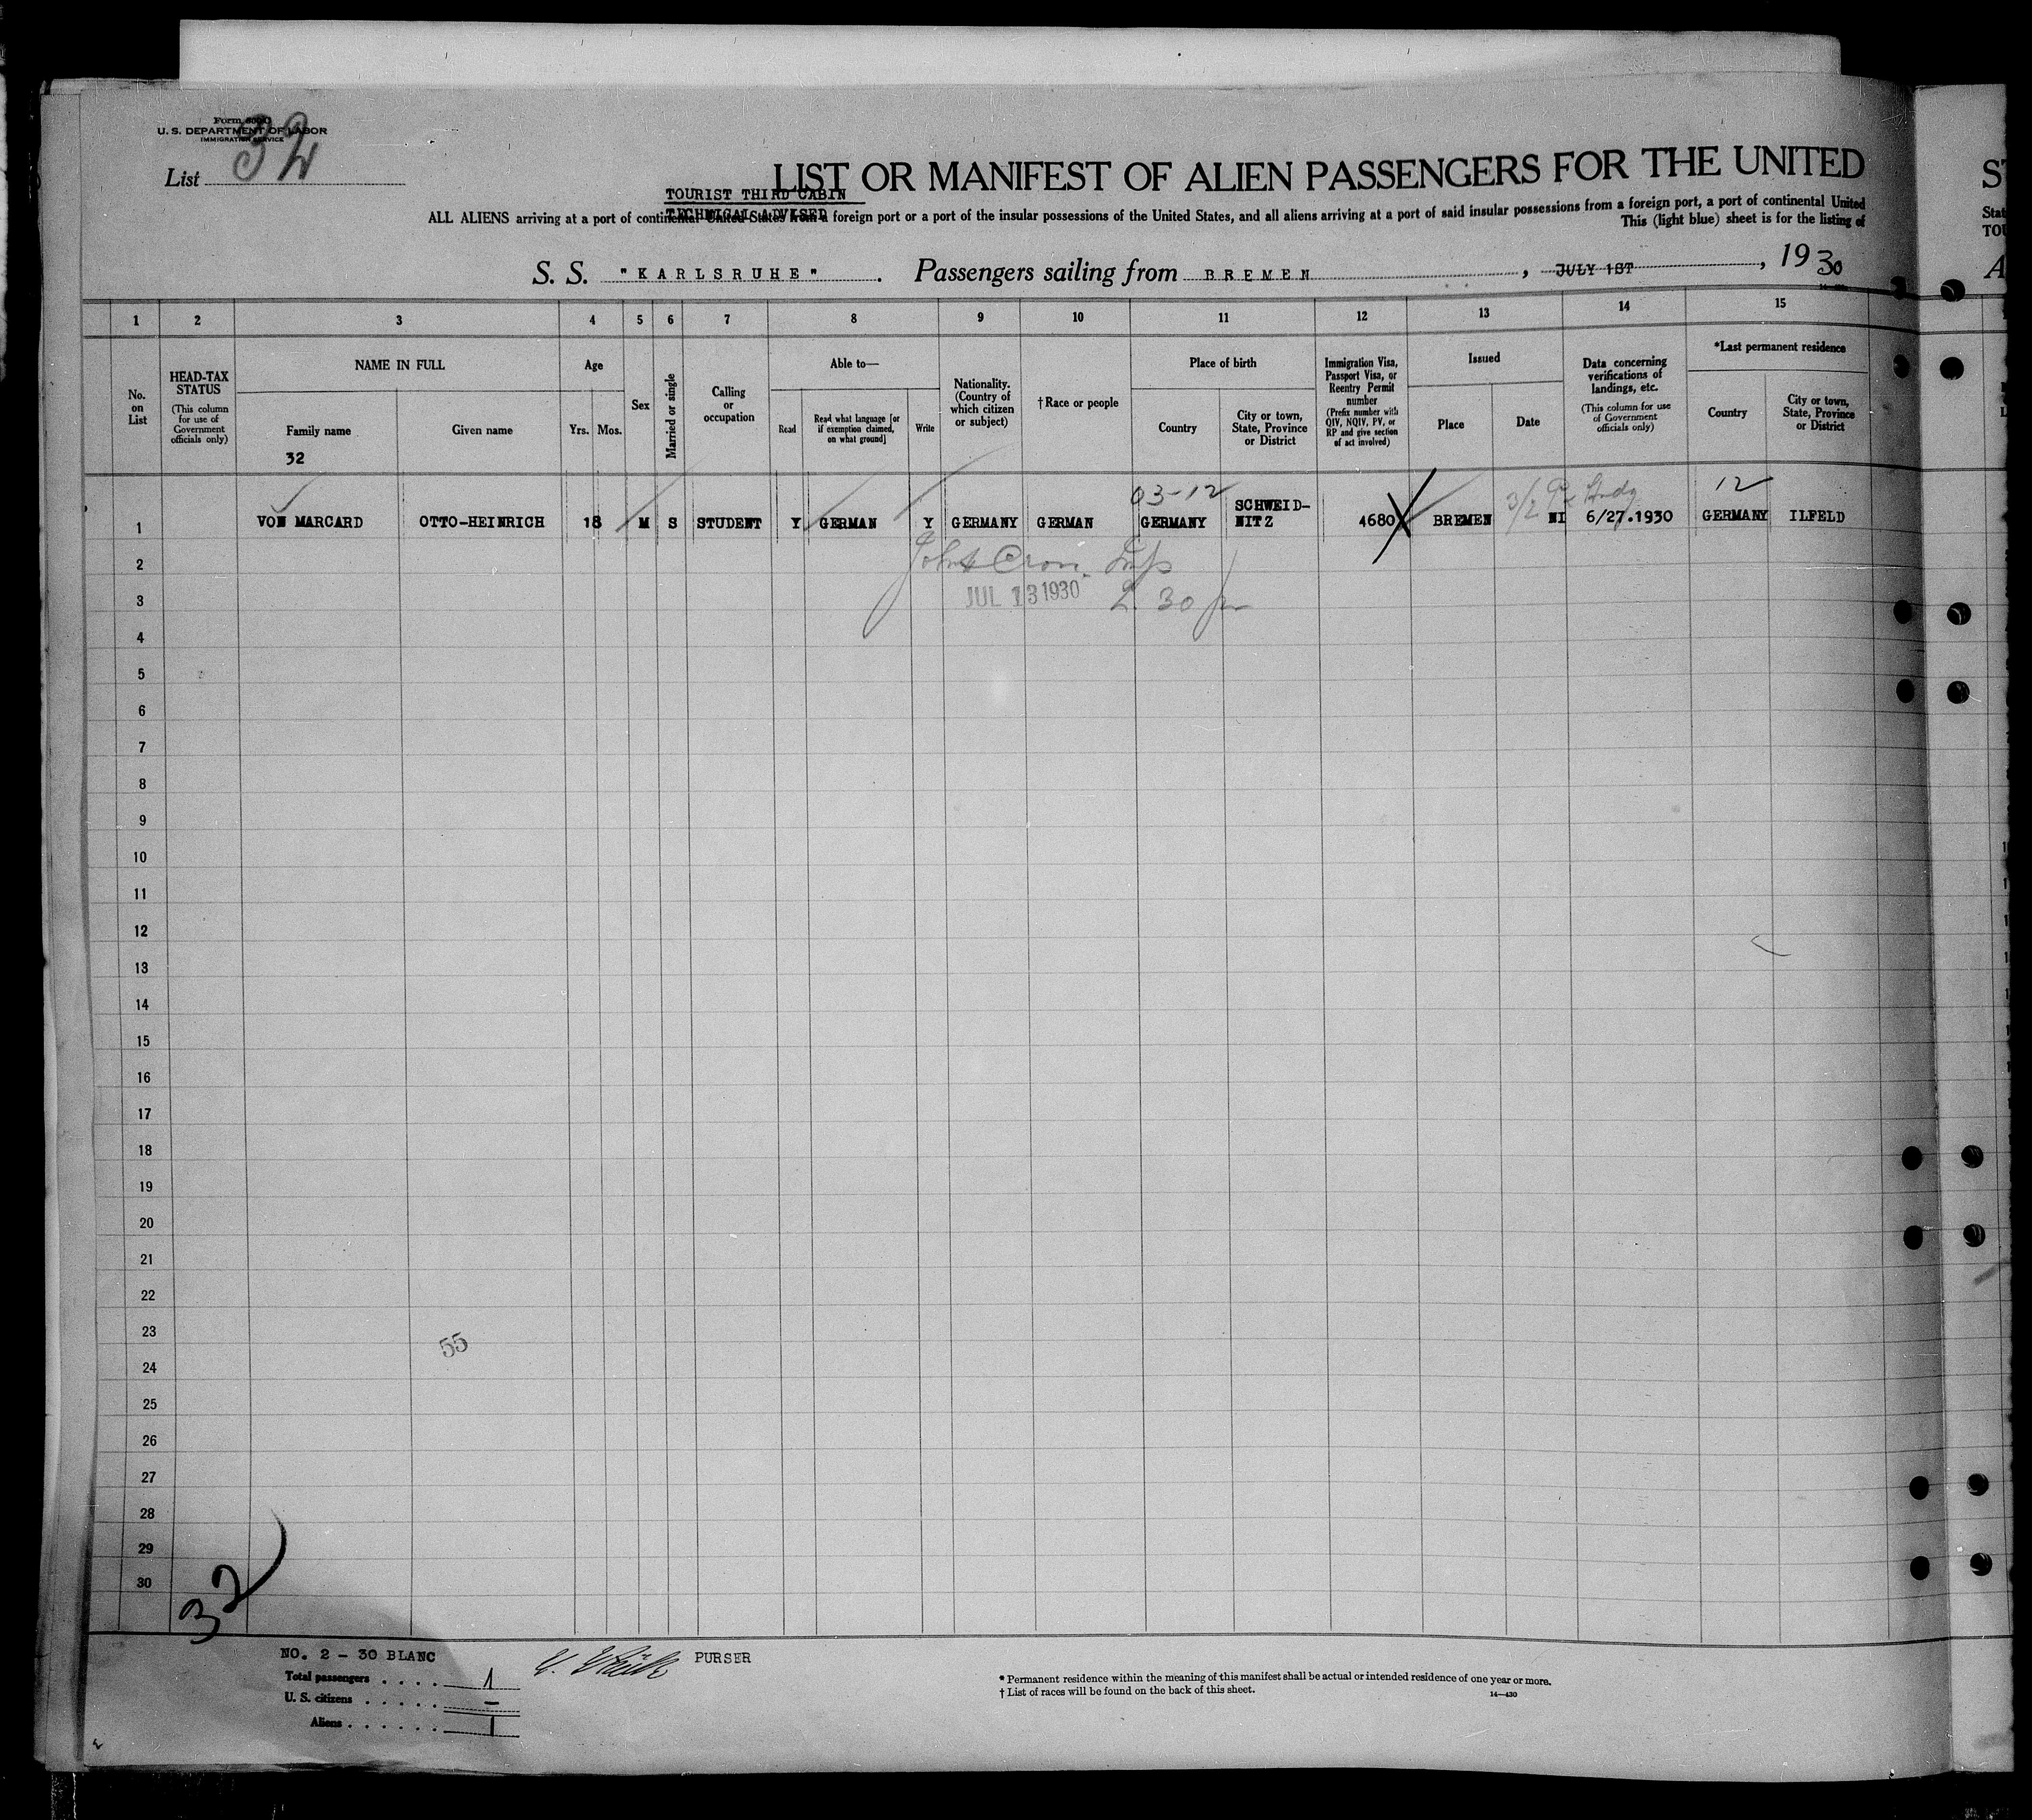 Form 500 D
U. S. DEPARTMENT OF LABOR
IMMIGRATION SERVICE
List 32
LIST OR MANIFEST OF ALIEN PASSENGERS FOR THE UNITED
TOURIST THIRD CABIN
ALL ALIENS arriving at a port of continental United States from a foreign port or a port of the insular possessions of the United States, and all aliens arriving at a port of said insular possessions from a foreign port, a port of continental United
This (light blue) sheet is for the listing of
S. S. "KARLSRUHE". Passengers sailing from BREMEN, JULY 1ST, 1930
1 2 3 4 5 6 7 8 9 10 11 12 13 14 15
No. on List
HEAD-TAX STATUS
(This column for use of Government officials only)
NAME IN FULL
Family name
Given name
32
Age
Yrs. Mos.
Sex
Married or single
Calling or occupation
Able to—
Read
Read what language [or if exemption claimed, on what ground]
Write
Nationality. (Country of which citizen or subject)
†Race or people
Place of birth
Country
City or town, State, Province or District
Immigration Visa, Passport Visa, or Reentry Permit number
(Prefix number with QIV, NQIV, PV, or RP and give section of act involved)
Issued
Place
Date
Data concerning verifications of landings, etc.
(This column for use of Government officials only)
*Last permanent residence
Country
City or town, State, Province or District
03-12
12
1 VON MARCARD OTTO-HEINRICH 18 M S STUDENT Y GERMAN Y GERMANY GERMAN GERMANY SCHWEID-NITZ 4680 BREMEN NI 6/27.1930 GERMANY ILFELD
2
3 JUL 13 1930 2 30
4
5
6
7
8
9
10
11
12
13
14
15
16
17
18
19
20
21
22
23
55
24
25
26
27
28
29
30
32
NO. 2 - 30 BLANC
PURSER
Total passengers . . . . 1
U. S. citizens . . . . . –
Aliens . . . . . . 1
* Permanent residence within the meaning of this manifest shall be actual or intended residence of one year or more.
† List of races will be found on the back of this sheet.
14—430